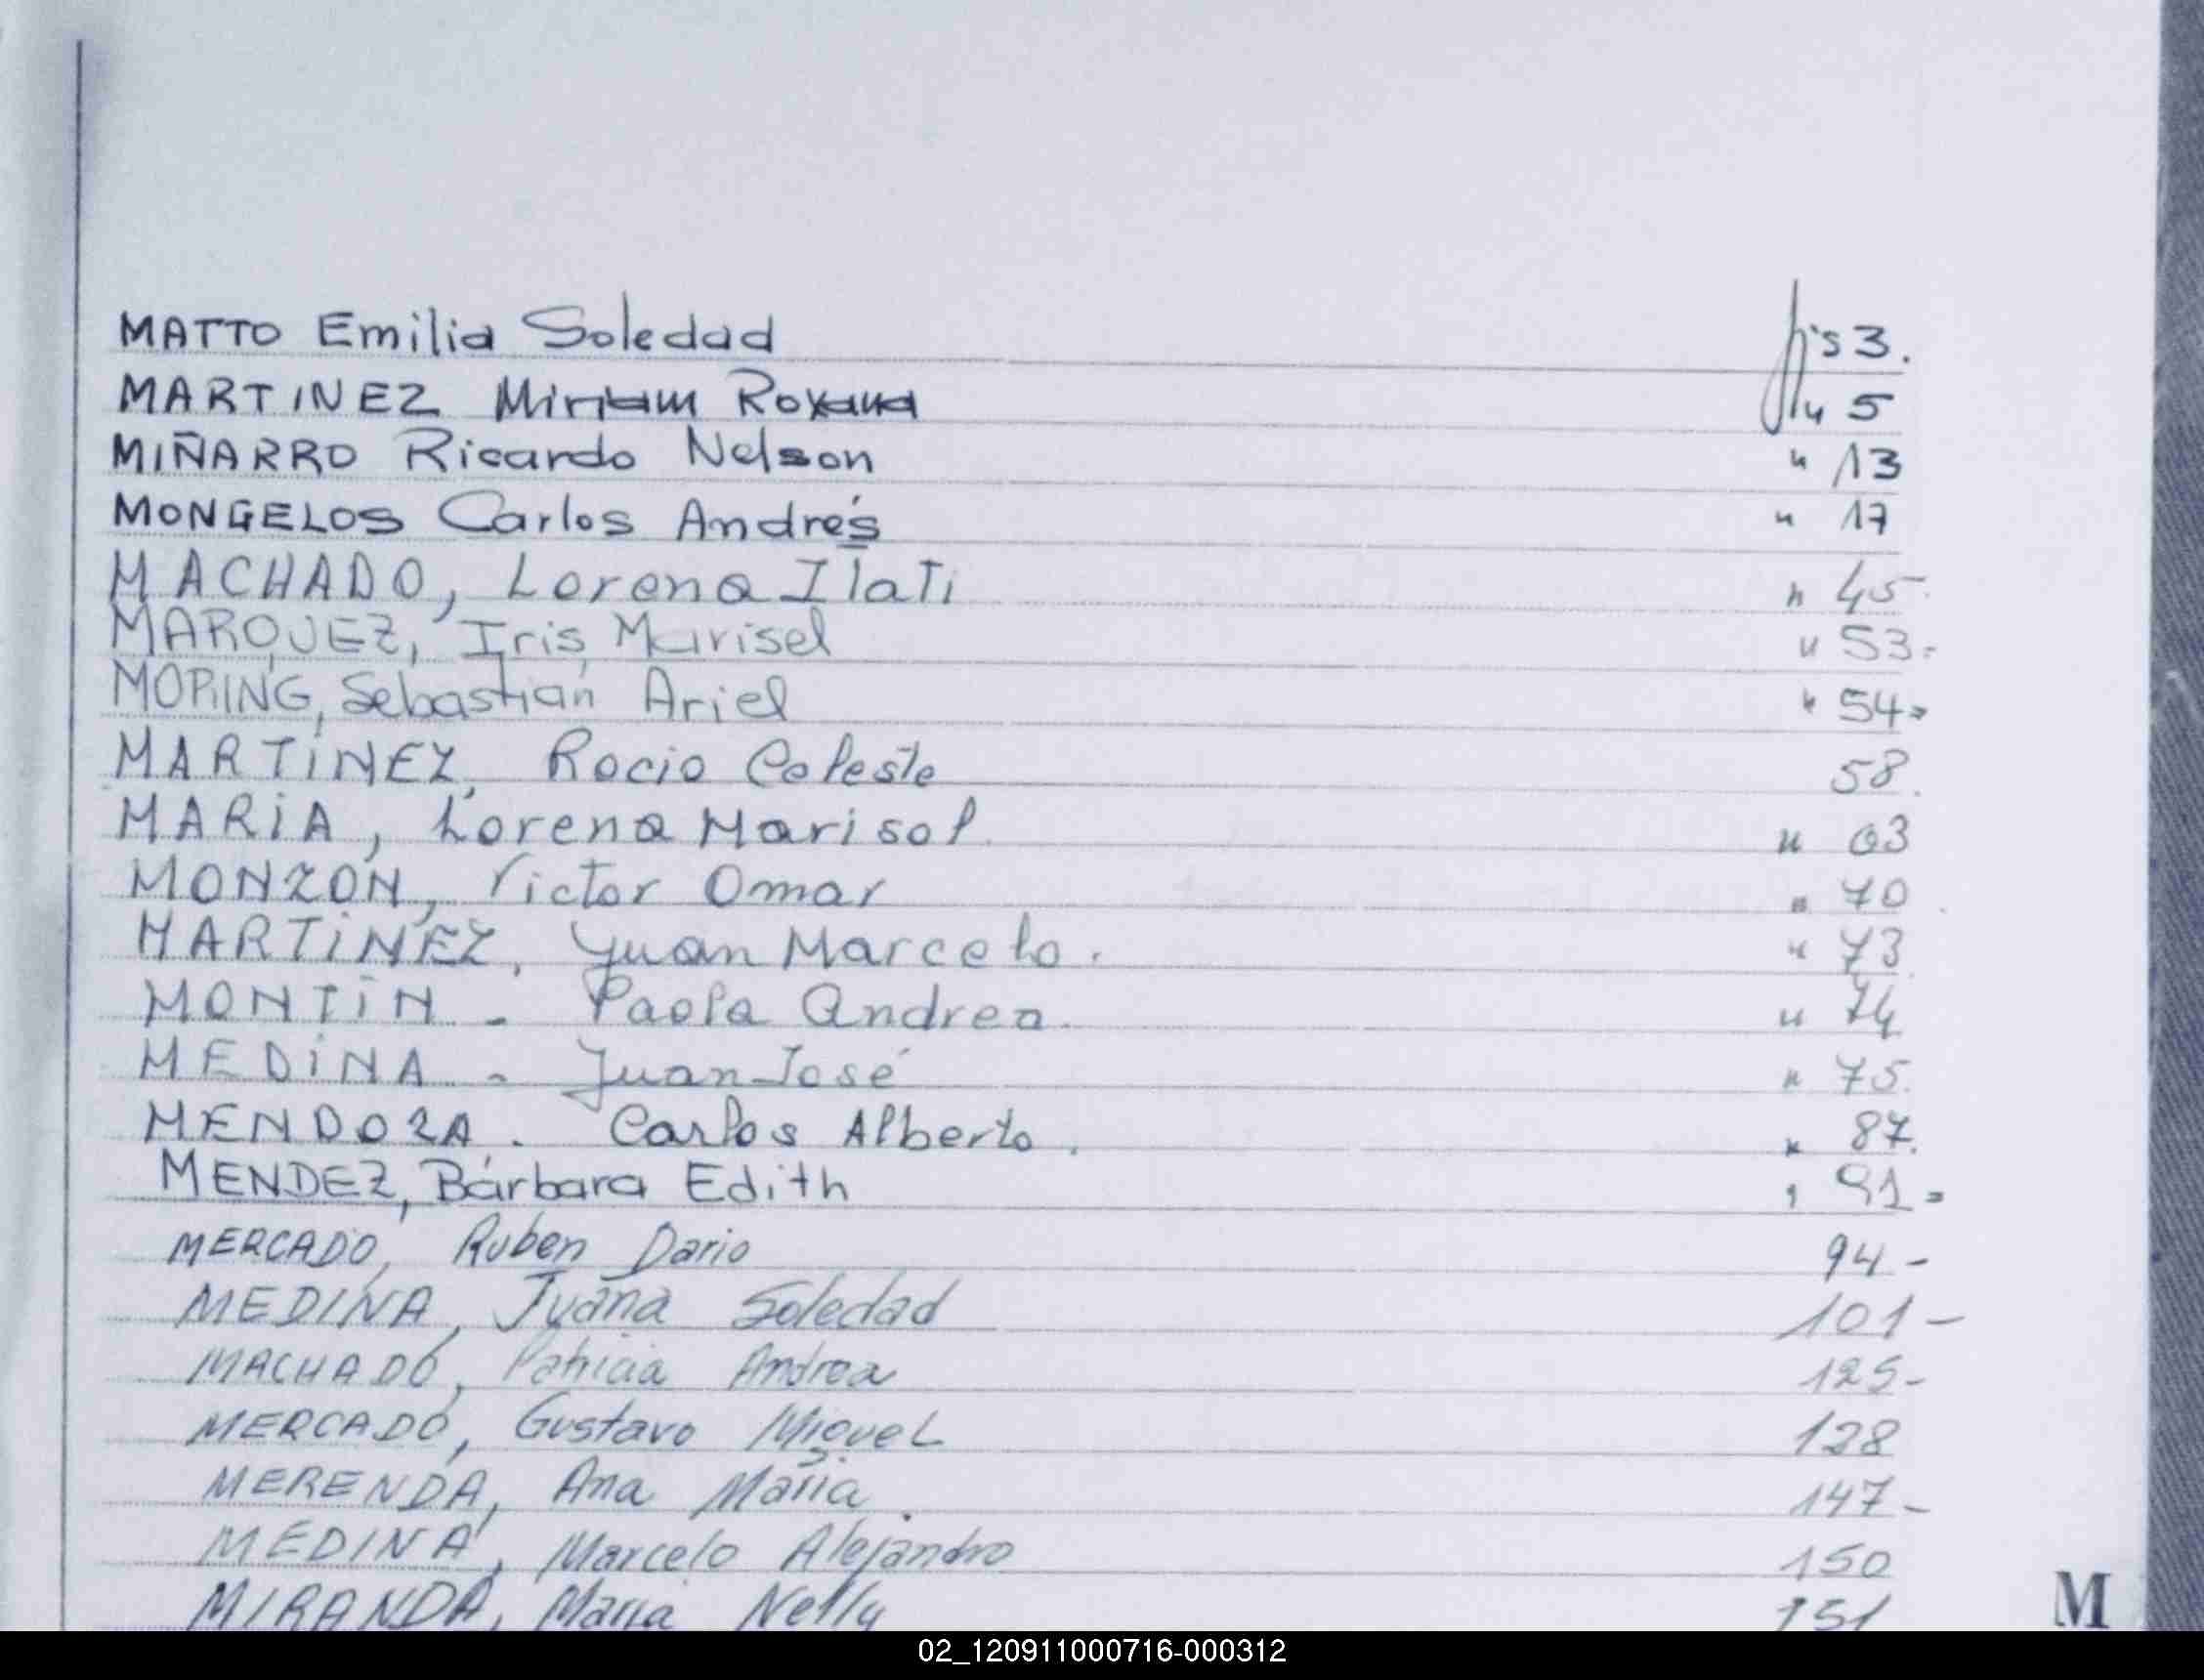 MATTO Emilia Soledad fjs 3.
MARTINEZ Miriam Roxana " 5
MIÑARRO Ricardo Nelson " 13
MONGELOS Carlos Andrés " 17
MACHADO, Lorena Ilati " 45
MARQUEZ, Iris Marisel " 53-
MORING, Sebastian Ariel " 54-
MARTINEZ, Rocio Celeste 58.
MARIA, Lorena Marisol " 63
MONZON, Victor Omar " 70
MARTINEZ, Juan Marcelo. " 73
MONTIN - Paola Andrea. " 74
MEDINA - Juan José " 75.
MENDOZA. Carlos Alberto. " 87.
MENDEZ, Bárbara Edith " 91-
MERCADO, Ruben Dario 94-
MEDINA, Juana Soledad 101-
MACHADO, Patricia Andrea 125-
MERCADO, Gustavo Miguel 128
MERENDA, Ana Maria 147-
MEDINA, Marcelo Alejandro 150
MIRANDA, Maria Nelly 151
M
02_120911000716-000312